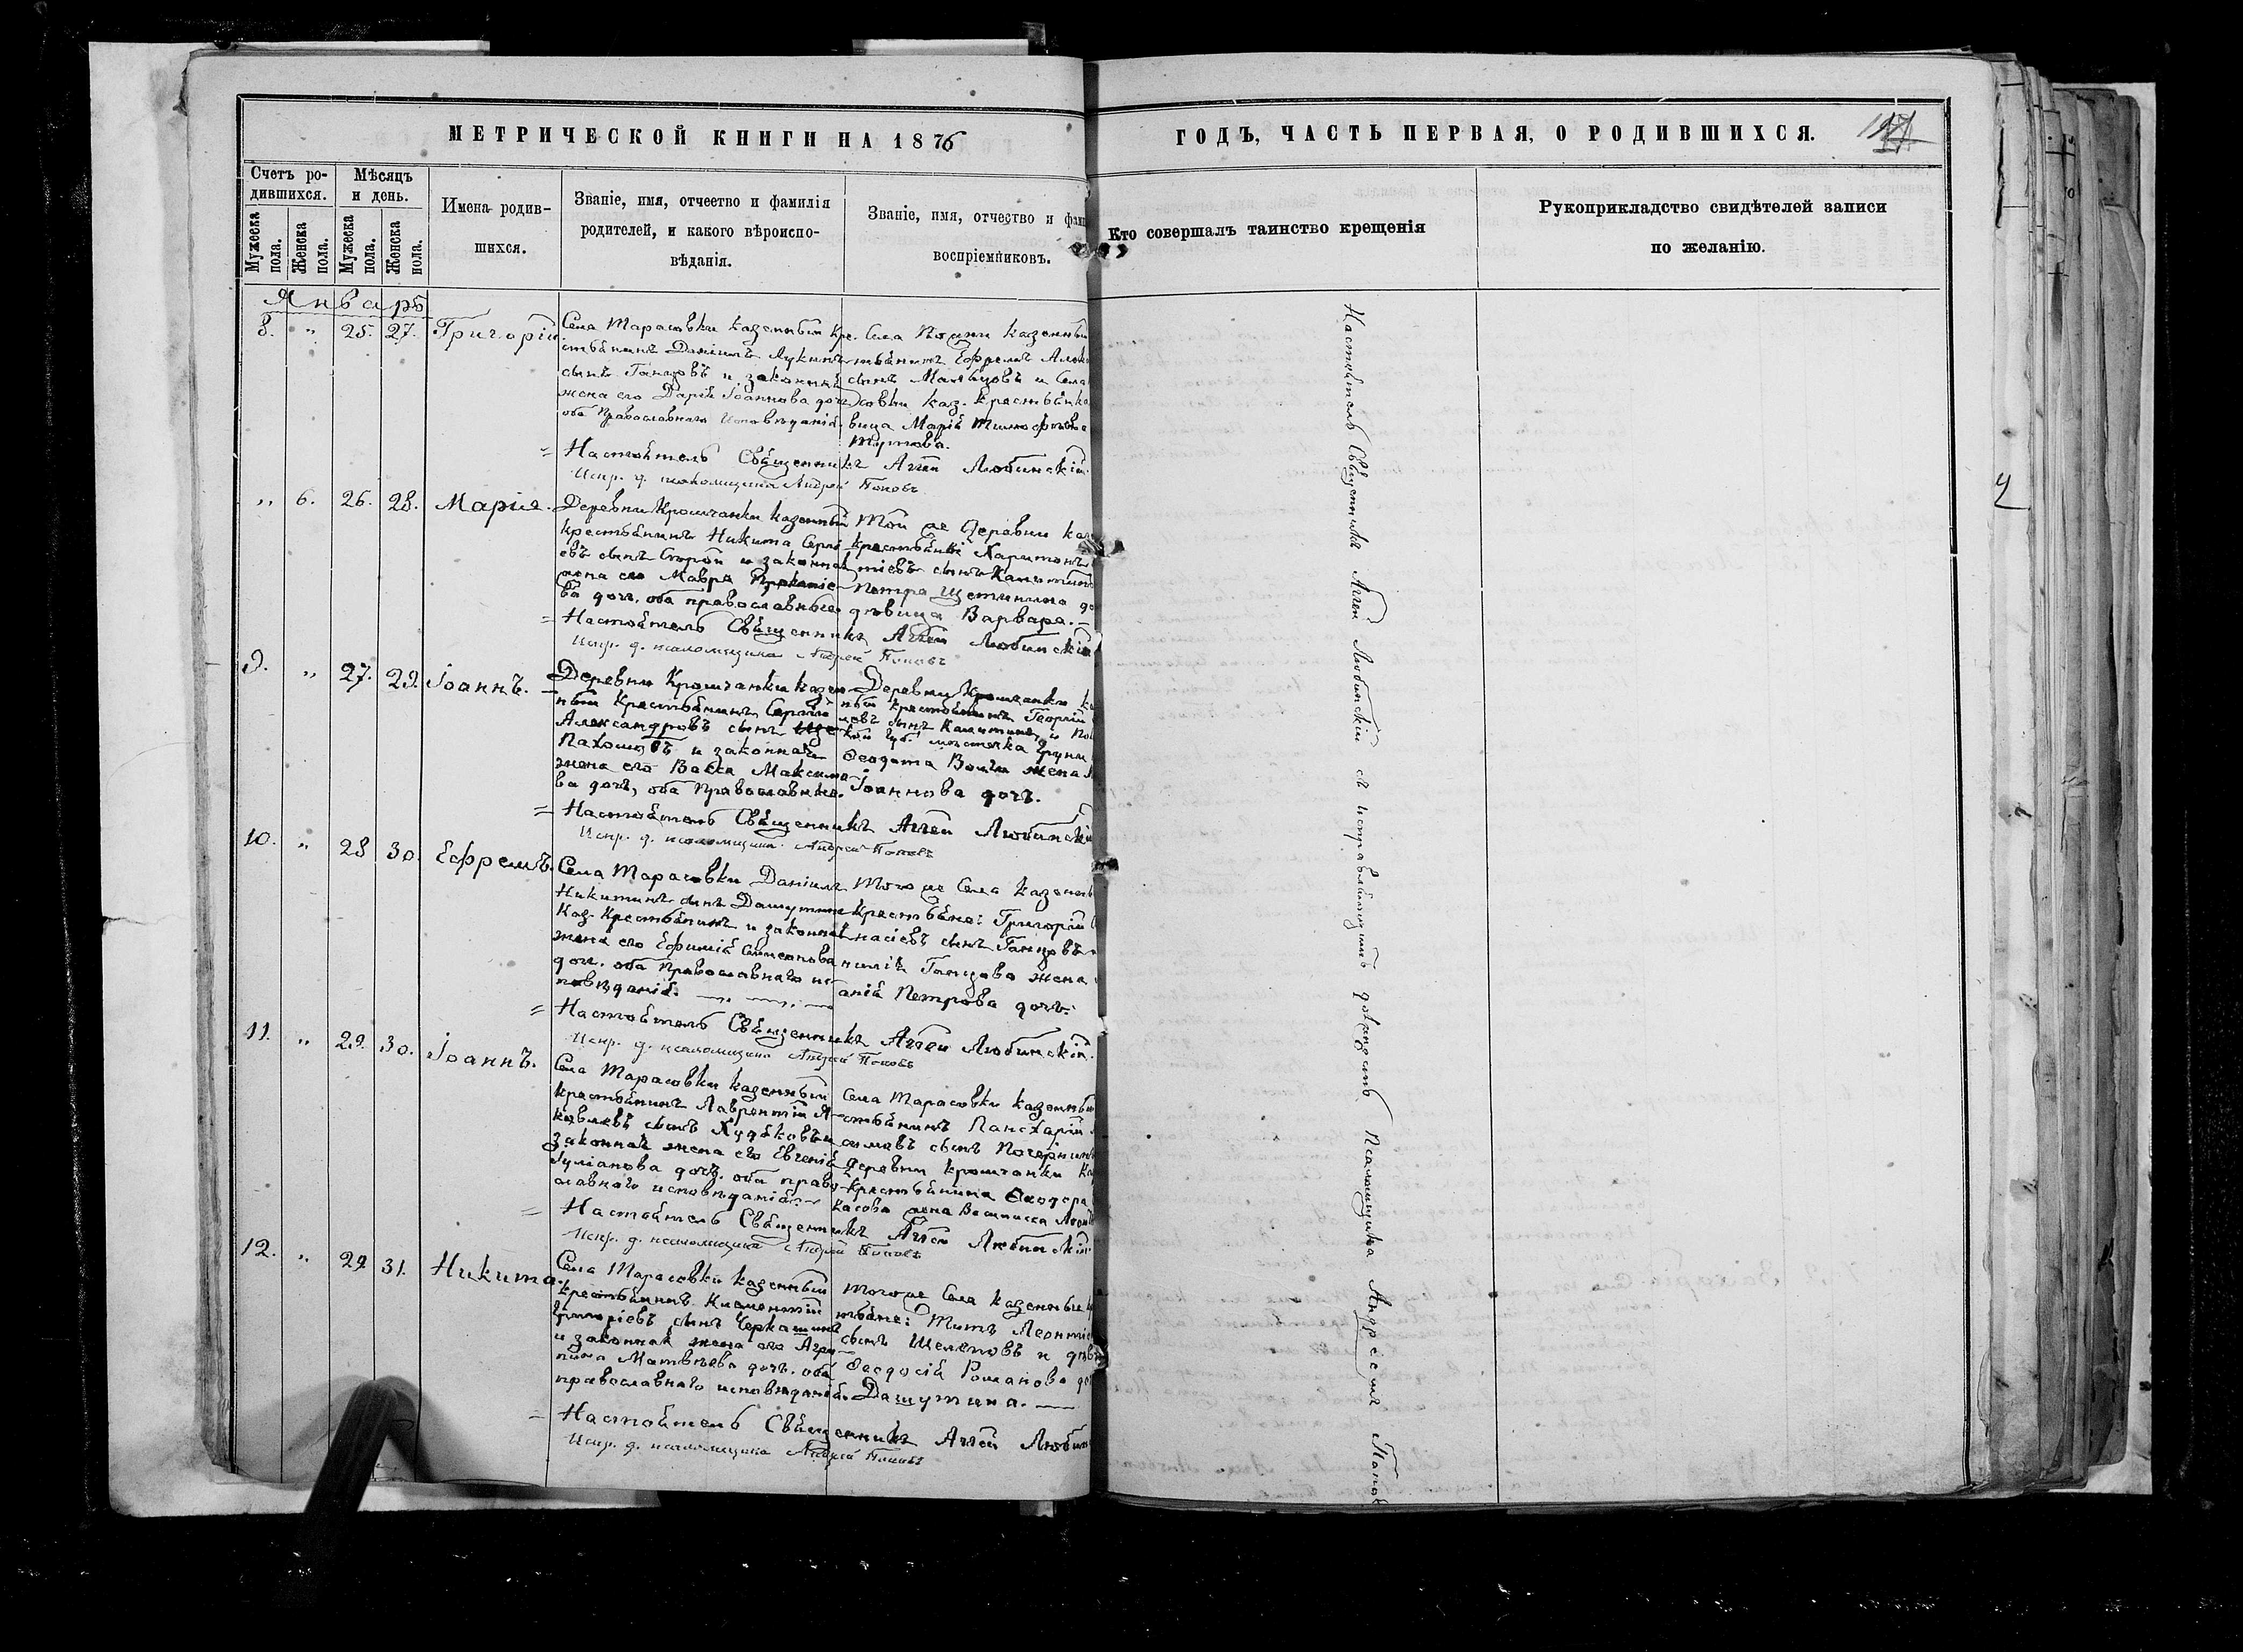 МЕТРИЧЕСКОЙ КНИГИ НА 1876
ГОДЪ, ЧАСТЬ ПЕРВАЯ, О РОДИВШИХСЯ.
Счетъ ро-
дившихся.
Мужеска пола.
Женска пола.
Мѣсяцъ
и день.
Мужеска пола.
Женска пола.
Имена родив-
шихся.
Званіе, имя, отчество и фамилія
родителей, и какого вѣроиспо-
вѣданія.
Званіе, имя, отчество и фами
воспріемниковъ.
Кто совершалъ таинство крещенія
Рукоприкладство свидѣтелей записи
по желанію.
Январь
8. " 25. 27. Григорій
Села Тарасовки казенный кре-
стьянинъ Даніилъ Лукинъ
сынъ Ганцовъ и законная
жена его Дарія Іоаннова доч.
оба Православнаго Исповѣданія.
Села казенный
стьянинъ Ефремъ
сынъ Мальцовъ и Села
каз. крестьянка
вица Марія Тимофѣева
Настоятель Священникъ Аггей Любинскій.
Испр. д. псаломщика Андрей Поповъ
" 6. 26. 28. Марія.
Деревни Кромчанки казенный
крестьянинъ Никита Сергі-
евъ сынъ и законная
жена его Мавра
ва доч. оба православные
Той же Деревни каз
крестьяне Харитонъ
сынъ
Петра Щетинина до
дѣвица Варвара. —
Настоятель Священникъ Аггей Любинскій
Испр. д. псаломщика Андрей Поповъ
9. " 27. 29. Іоаннъ.
Деревни Кромчанки казен-
ный Крестьянинъ Сергій
Александровъ сынъ
Пахомовъ и законная
жена его Васса Максимо-
ва доч, оба Православные.
Деревни Кромчанки ка
ный крестьянинъ Георгій
сынъ и
кой губ. мѣстечка Груни
Ѳеодота жена
Іоаннова дочь.
Настоятель Священникъ Аггей Любинскій
Испр. д. псаломщика Андрей Поповъ
10. " 28 30. Ефремъ.
Села Тарасовки Даніилъ
Никитинъ сынъ Дашутинъ
Каз. Крестьянинъ и законная
жена его Ефимія Симеонова
доч. оба Православнаго ис-
повѣданія.
Того же Села казенные
Крестьяне: Григорій
насіевъ сынъ Ганцовъ и
Ганцова жена
анія Петрова дочь.
Настоятель Священникъ Аггей Любинскій.
Испр. д. псаломщика Андрей Поповъ
11. " 29. 30. Іоаннъ.
Села Тарасовки казенный
крестьянинъ Лаврентій Я-
ковлевъ сынъ Худяковъ и
законная жена его Евгенія
Іуліанова доч. оба право-
славнаго исповѣданія.
Села Тарасовки казенный
стьянинъ
сынъ
Деревни Кромчанки Каз
крестьянина Ѳеодора
касова жена Василисса
Настоятель Священникъ Аггей Любинскій
Испр. д. псаломщика Андрей Поповъ
12. " 29 31. Никита.
Села Тарасовки казенный
крестьянинъ Климентій
Григоріевъ сынъ Черкашинъ
и законная жена его Агри-
пина Матвѣева доч. оба
православнаго исповѣданія.
Того же Села казенные
стьяне: Титъ Леонтіе
сынъ и дѣв
Ѳеодосія Романова до
Дашутина. —
Настоятель Священникъ Аггей Любин
Испр. д. псаломщика Андрей Поповъ
Настоятель Священникъ Аггей Любинскій съ исправляющимъ должность Псаломщика Андреемъ Попов